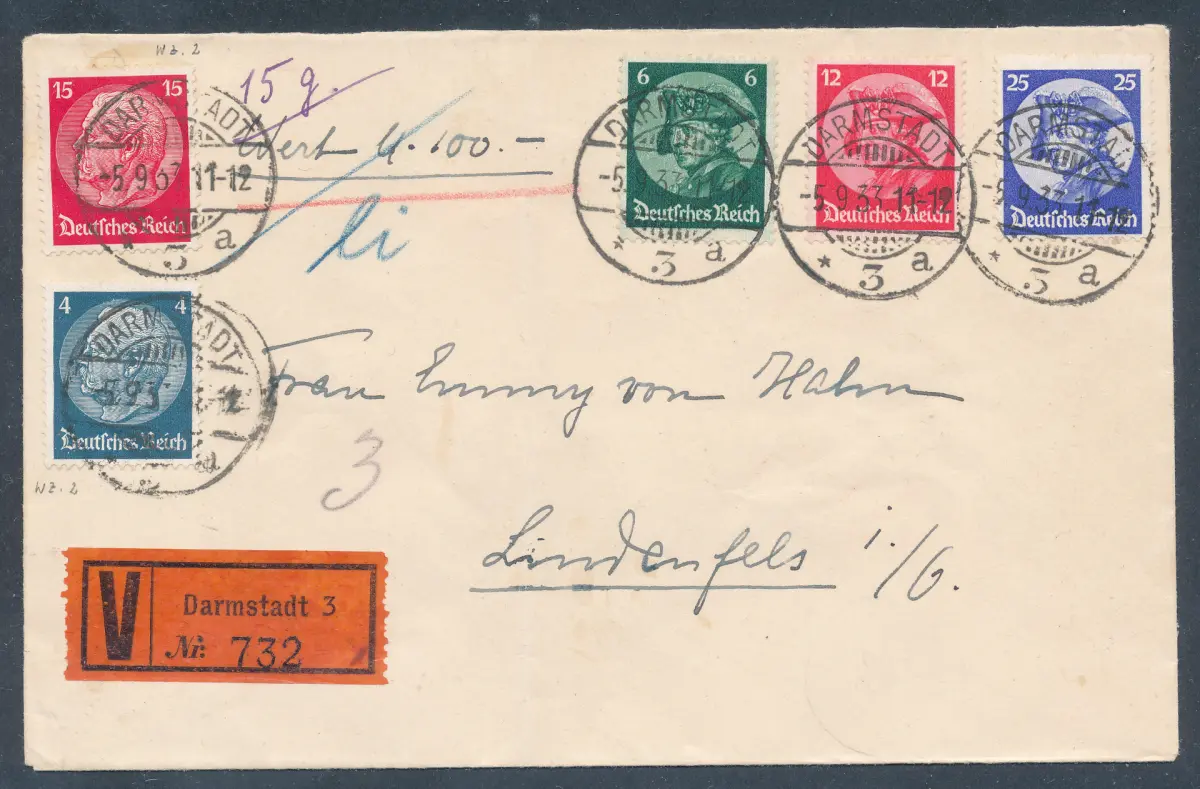 WZ. 2
15 15
Deutsches Reich
DARMSTADT
-5.9.33 11-12
* 3 a
15 g.
Wert M. 100.-
li
6 6
Deutsches Reich
DARMSTADT
-5.9.33 11-12
* 3 a
12 12
Deutsches Reich
DARMSTADT
-5.9.33 11-12
* 3 a
25 25
Deutsches Reich
DARMSTADT
-5.9.33 11-12
* 3 a
4 4
Deutsches Reich
DARMSTADT
-5.9.33 11-12
a
WZ. 2
Frau Emmy von Hahn
3
Lindenfels i./O.
V
Darmstadt 3
Nr. 732